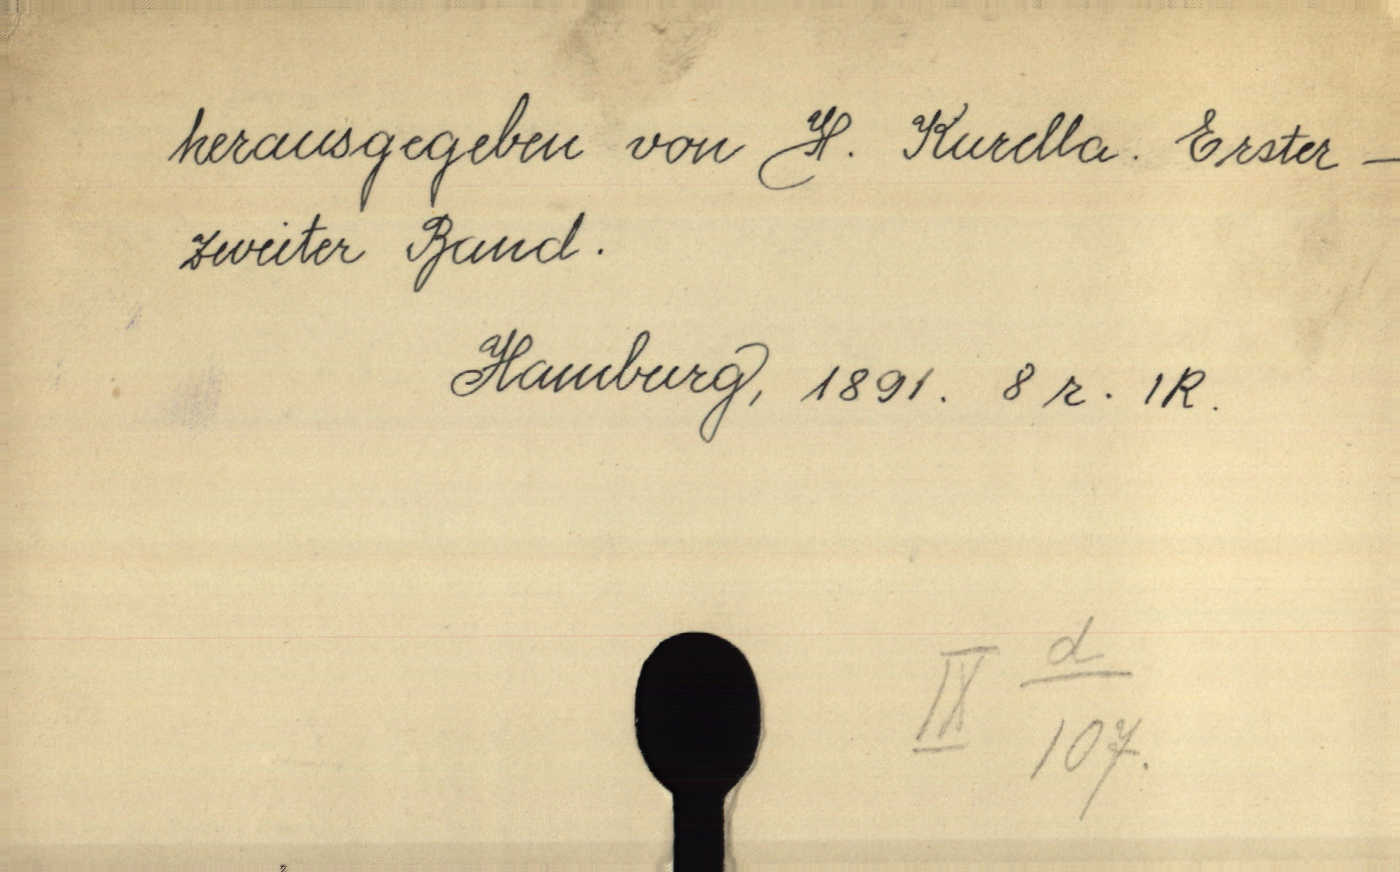 herausgegeben von H. Kurella. Erster —
zweiter Band.
Hamburg, 1891. 8 r. 1R.
IX d
107.